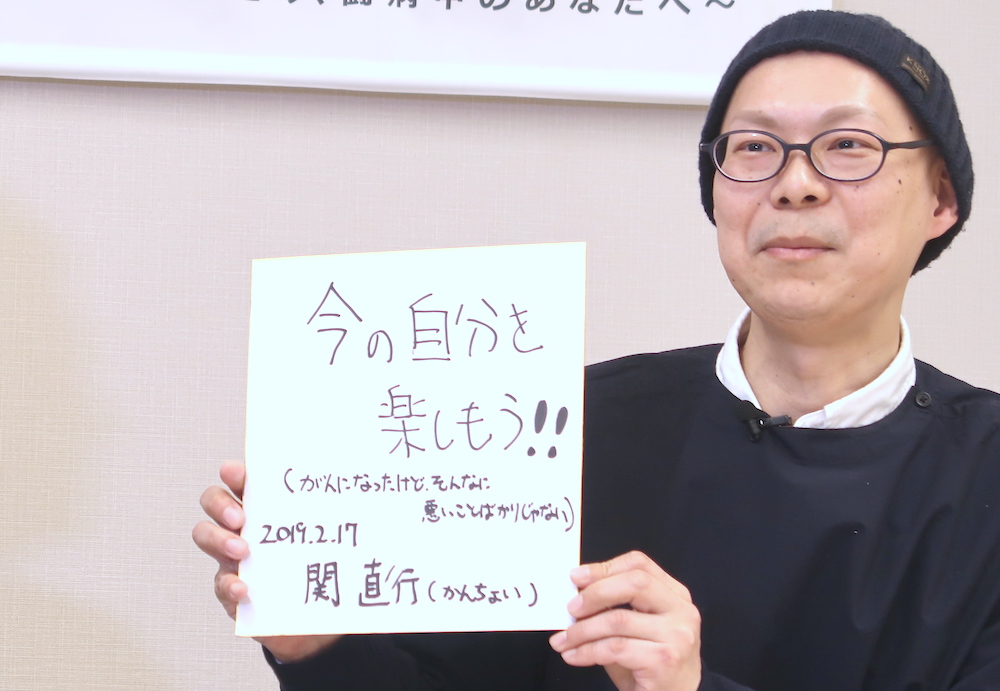 闘病中のあなたへ～
今の自分を
楽しもう!!
（がんになったけど、そんなに
悪いことばかりじゃない）
2019.2.17
関 直行（かんちょい）